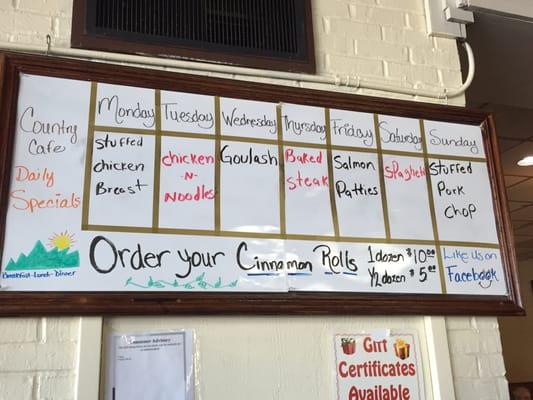 Country
Cafe
Daily
Specials
Breakfast-Lunch-Dinner
Monday
Stuffed
chicken
Breast
Tuesday
chicken
-N-
Noodles
Wednesday
Goulash
Thursday
Baked
steak
Friday
Salmon
Patties
Saturday
Spaghetti
Sunday
Stuffed
Pork
Chop
Order your Cinnamon Rolls
1 dozen $10.00
1/2 dozen $5.00
Like us on
Facebook
Consumer Advisory
Gift
Certificates
Available